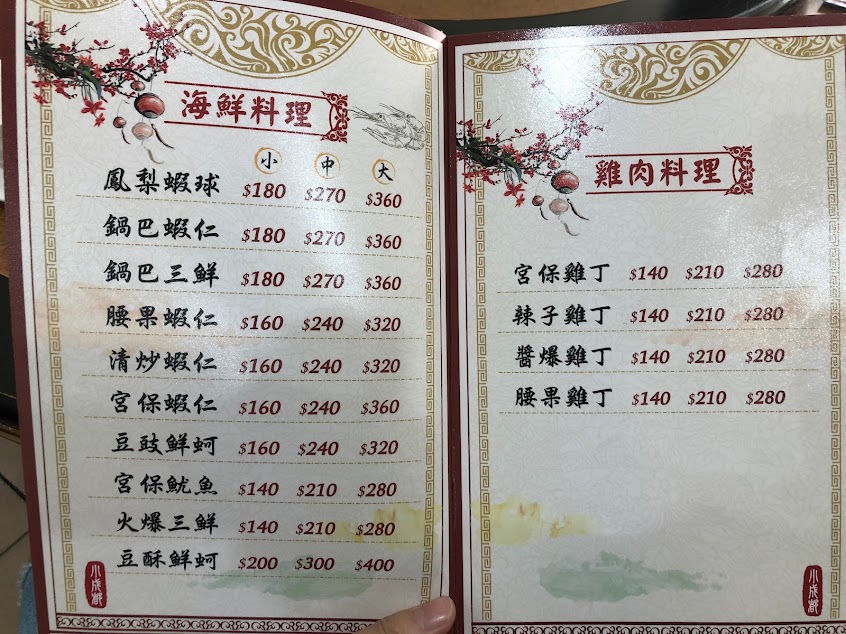 海鮮料理
小 中 大
鳳梨蝦球 $180 $270 $360
鍋巴蝦仁 $180 $270 $360
鍋巴三鮮 $180 $270 $360
腰果蝦仁 $160 $240 $320
清炒蝦仁 $160 $240 $320
宮保蝦仁 $160 $240 $360
豆豉鮮蚵 $160 $240 $320
宮保魷魚 $140 $210 $280
火爆三鮮 $140 $210 $280
豆酥鮮蚵 $200 $300 $400
小成都
雞肉料理
宮保雞丁 $140 $210 $280
辣子雞丁 $140 $210 $280
醬爆雞丁 $140 $210 $280
腰果雞丁 $140 $210 $280
小成都